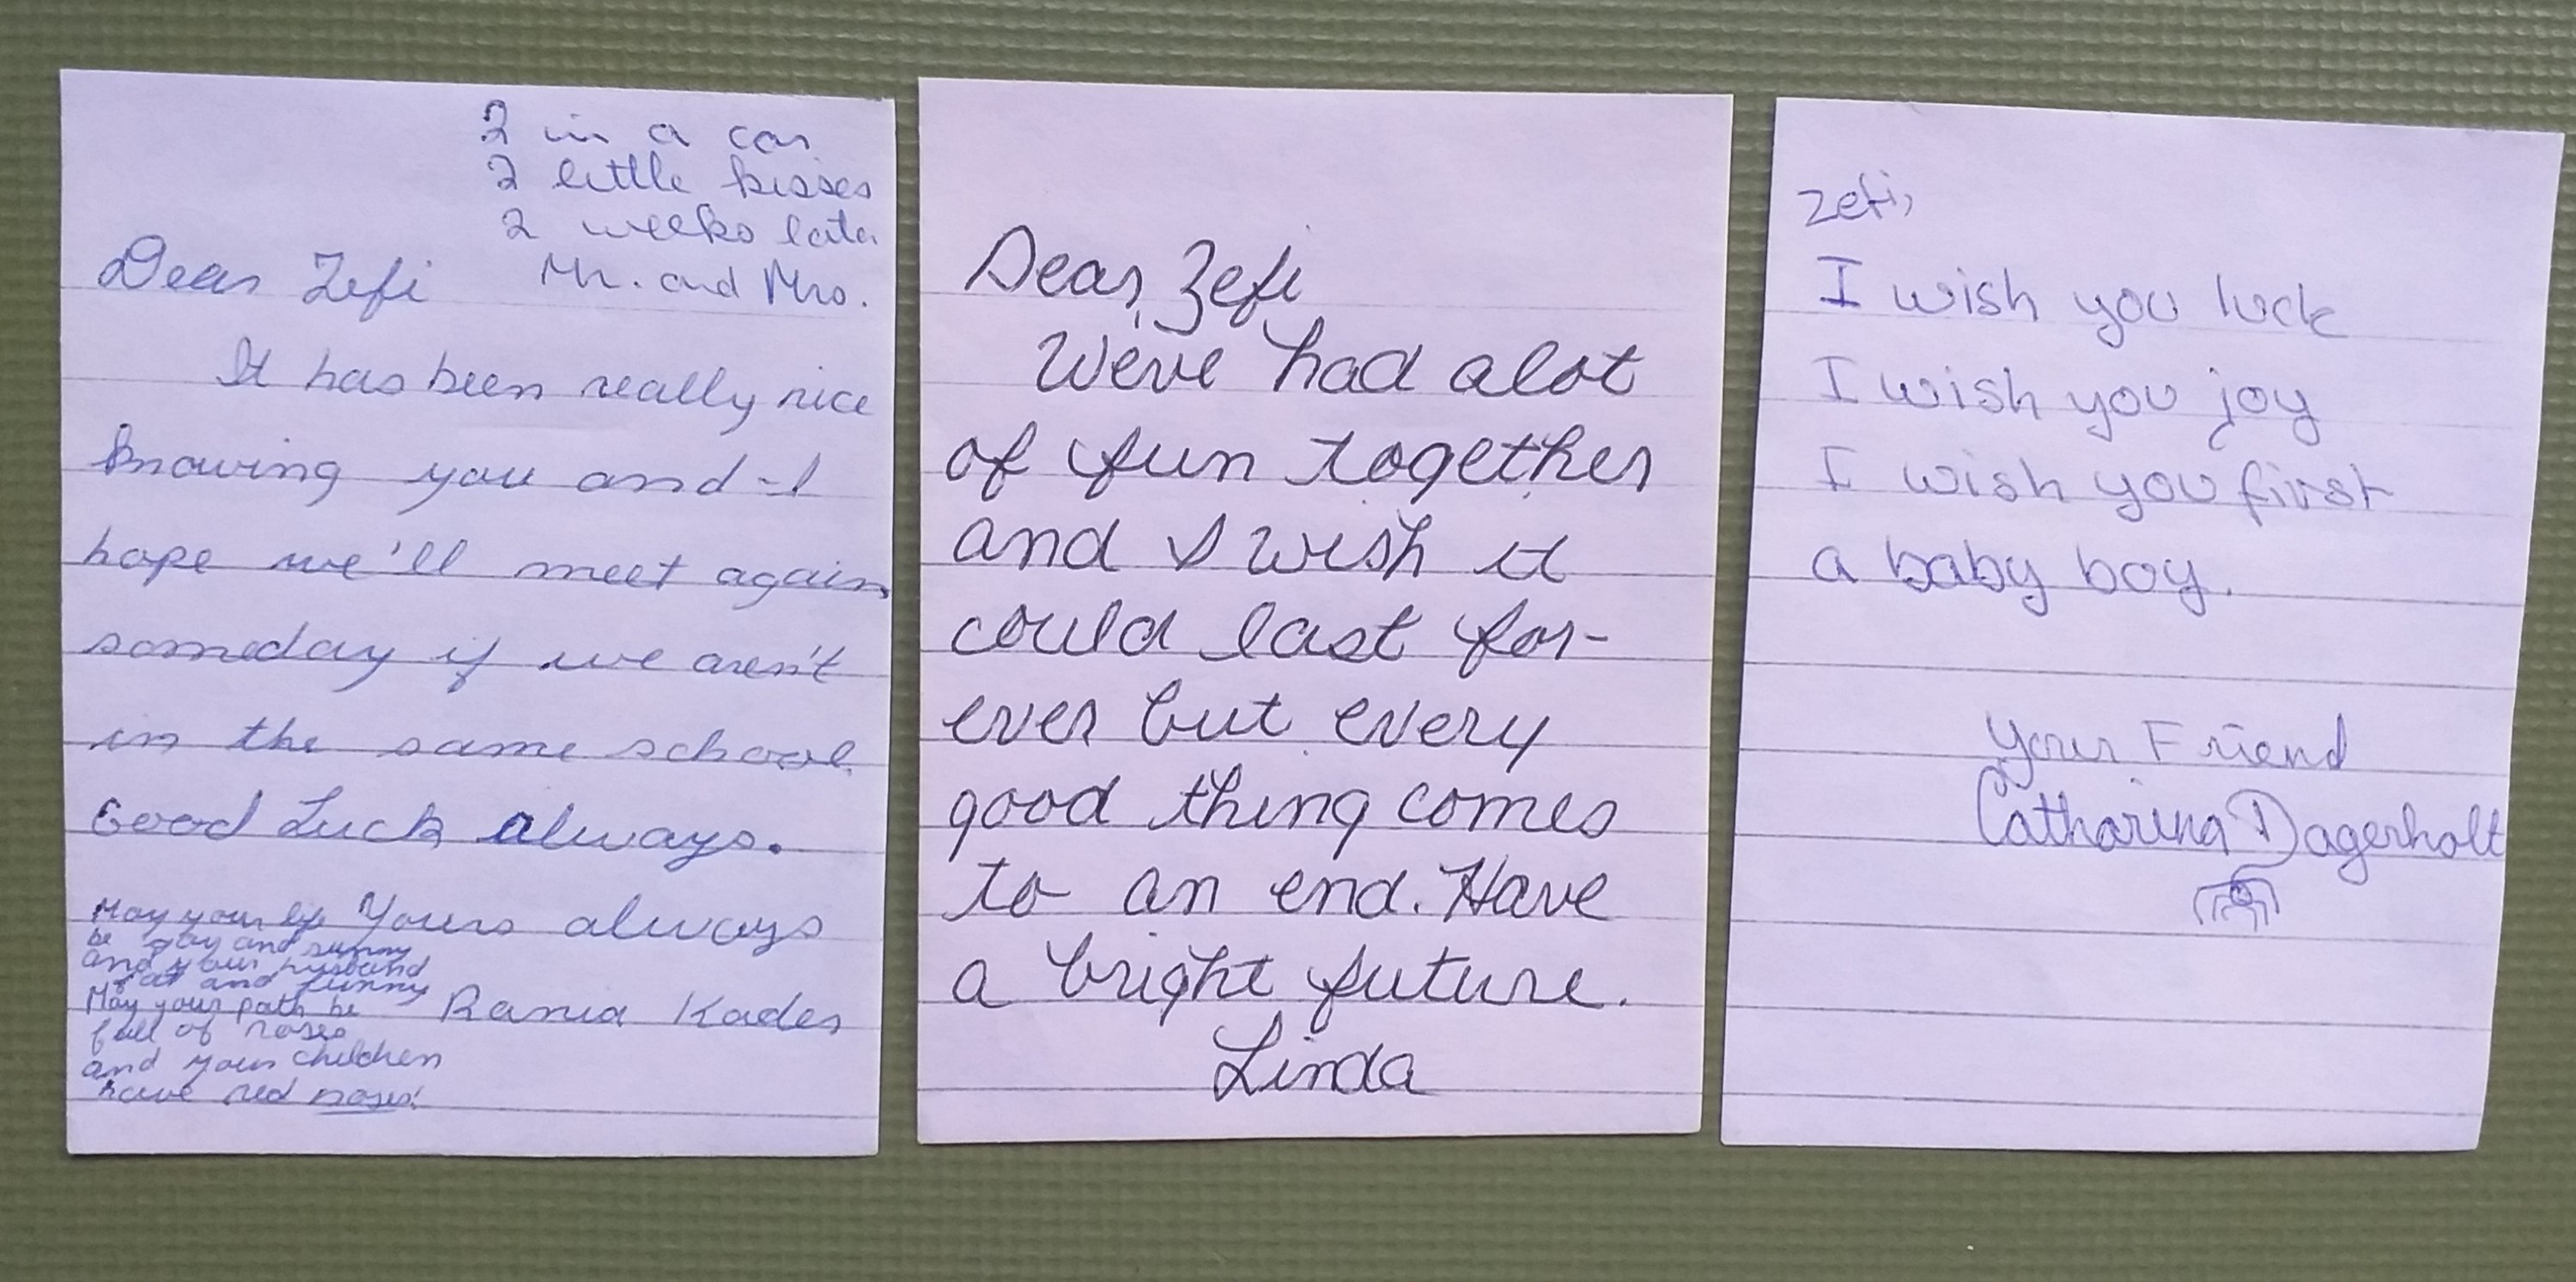 2 in a car
2 little kisses
2 weeks later
Mr. and Mrs.
Dear Zefi
It has been really nice
knowing you and I
hope we'll meet again
someday if we aren't
in the same school.
Good Luck always.
Yours always
Rania Kader
May your life
be gay and sunny
and your husband
fat and funny
May your path be
full of roses
and your children
have red noses!
Dear, Zefi
We've had alot
of fun together
and I wish it
could last for-
ever but every
good thing comes
to an end. Have
a bright future.
Linda
Zefi,
I wish you luck
I wish you joy
I wish you first
a baby boy.
Your Friend
Catharina Dagerholt